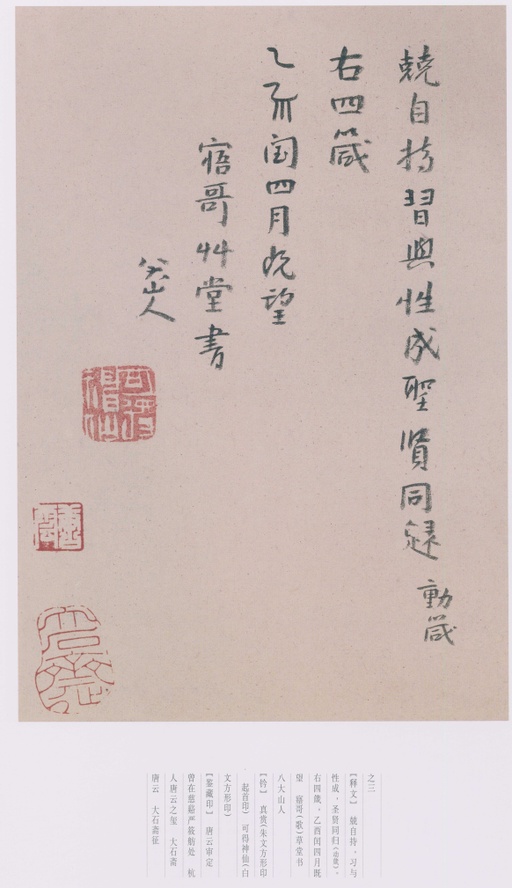 兢自持習與性成聖賢同歸 動箴
右四箴
乙酉閏四月既望
寤哥艸堂書
八大山人
可得神仙
之三
【释文】 兢自持，习与
性成，圣贤同归（动箴）。
右四箴，乙酉闰四月既
望 寤哥（歌）草堂书
八大山人
【钤】 真赏（朱文方形印
、起首印） 可得神仙（白
文方形印）
【鉴藏印】 唐云审定
曾在慈谿严筱舫处 杭
人唐云之玺 大石斋
唐云 大石斋征